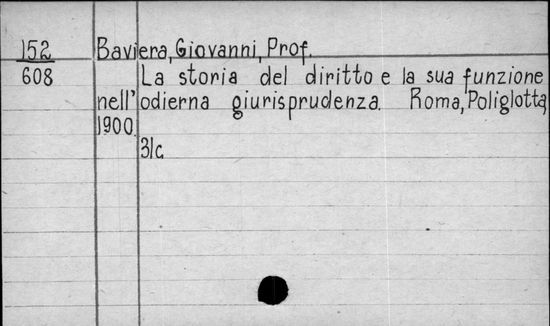 152 Baviera, Giovanni, Prof.
608 La storia del diritto e la sua funzione
nell' odierna giurisprudenza. Roma, Poliglotta,
1900.
31c.